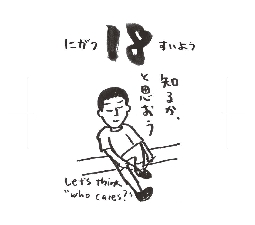 にがつ 18 すいよう
知るか、
と思おう
Let's think
"who cares?"